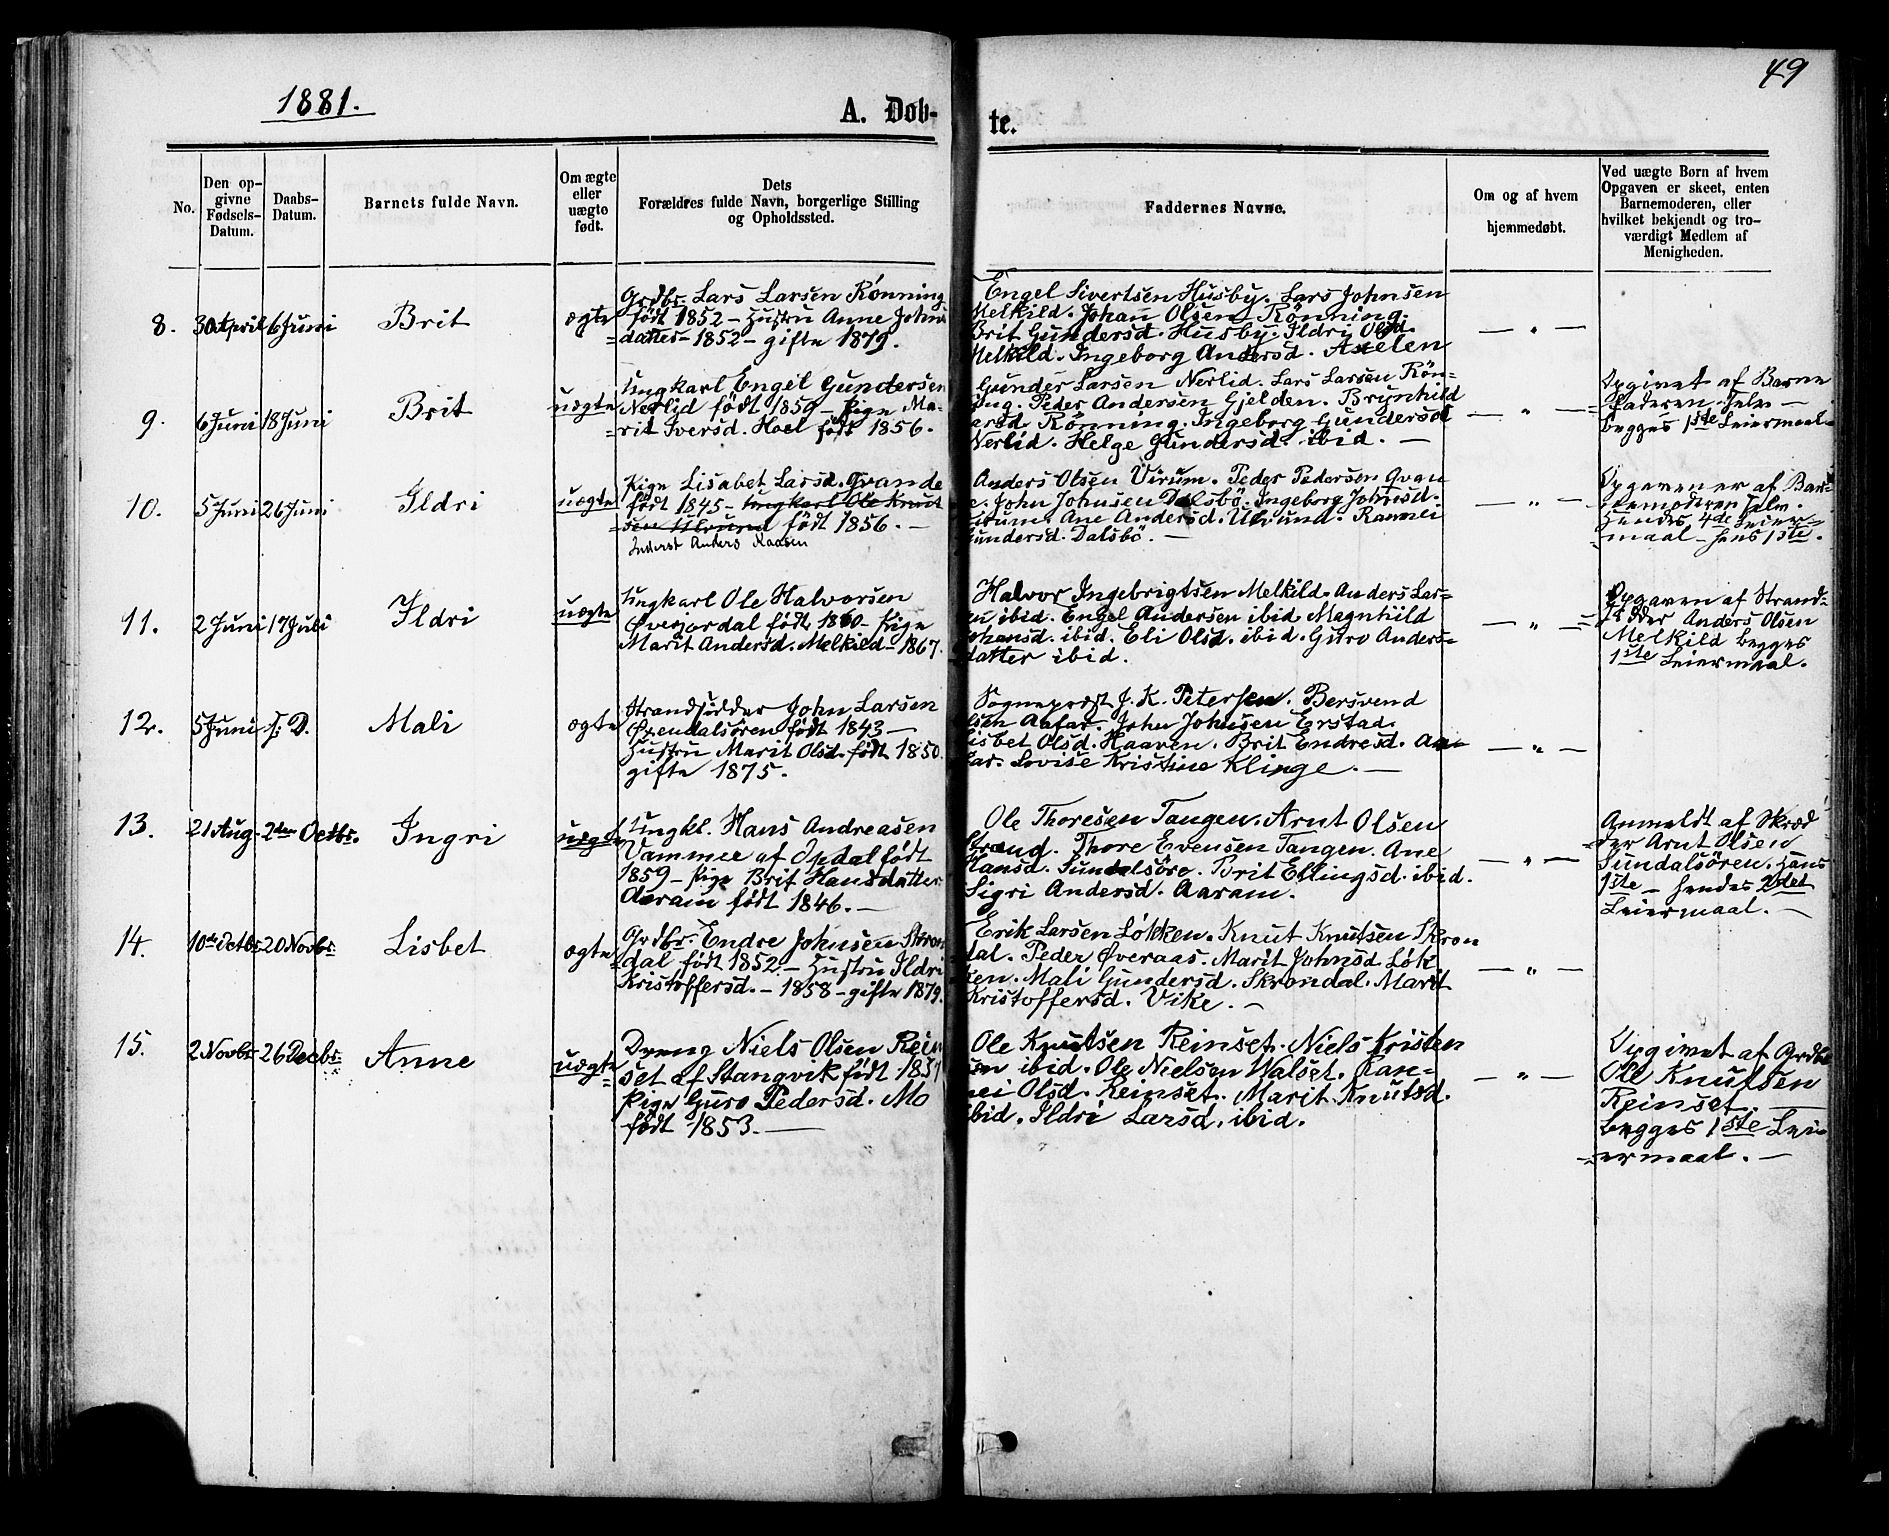 1881.
A. Døb-
te.
49
No.
Den op-
givne
Fødsels-
Datum.
Daabs-
Datum.
Barnets fulde Navn.
Om ægte
eller
uægte
født.
Dets
Forældres fulde Navn, borgerlige Stilling
og Opholdssted.
Faddernes Navne.
Om og af hvem
hjemmedøbt.
Ved uægte Børn af hvem
Opgaven er skeet, enten
Barnemoderen, eller
hvilket bekjendt og tro-
værdigt Medlem af
Menigheden.
8. 30 April 6 Juni Brit ægte
Grdbr. Lars Larsen Rønning
født 1852 – Hustru Anne Johns
=datter – 1852 – gifte 1879.
Engel Sivertsen Husby. Lars Johnsen
Melkild. Johan Olsen Rönning.
Brit Gundersd. Husby. Ildri Olsd.
Melkild. Ingeborg Andersd.
— " —
9. 6 Juni 18 Juni Brit uægte
Ungkarl Engel Gundersen
Nerlid født 1859 – Pige Ma-
=rit Iversd. Hoel født 1856.
Gunder Larsen Nerlid. Lars Larsen Rön-
ing. Peder Andersen Gjelden. Brynhild
Rønning. Ingeborg Gundersd
Nerlid. Helge Gundersd. ibid. —
— " —
Opgivet af Barne
=faderen selv —
begges 1ste Leiermaal.
10. 5 Juni 26 Juni Ildri uægte
Pige Lisabet Larsd. Grande
født 1845 – Ungkarl Ole Knut
=sen Ulvund født 1856. —
Inderst Anders Kaasen
Anders Olsen Virum. Peder Pedersen Gran
e. John Johnsen Dalsbö. Ingeborg Johnsd.
irum. Ane Andersd. Ulvund. Rannei
undersd. Dalsbö. —
— " —
Opgaven er af Bar-
nemoderen selv.
Hendes 4de Leier-
maal – hans 1ste.
11. 2 Juni 17 Juli Ildri uægte
Ungkarl Ole Halvorsen
Øverjordal født 1860 – Pige
Marit Andersd. Melkild – 1867.
Halvor Ingebrigtsen Melkild. Anders Lar-
en ibid. Engel Andersen ibid. Magnhild
Johansd. ibid. Eli Olsd. ibid. Guro Anders-
datter ibid.
— " —
Opgaven af Strand-
sidder Anders Olsen
Melkild begges
1ste Leiermaal.
12. 5 Juni s. D. Mali ægte
Strandsidder John Larsen
Øxendalsören født 1843 —
Hustru Marit Olsd. født 1850.
gifte 1875.
Sogneprest J. K. Petersen. Bersvend
lsen Aafar. John Johnsen Erstad.
Lisbet Olsd. Haaven. Brit Endresd. Aa-
far. Lovise Kristine Klinge. —
— " —
13. 21 Aug. 2den Octbr. Ingri uægte
Ungkl. Hans Andreasen
Vammee af Opdal født
1859 – Pige Brit Hansdatter
Aaram født 1846. —
Ole Thoresen Tangen. Arnt Olsen
Strand. Thore Evensen Tangen. Ane
Hansd. Sundalsöre. Brit Ellingsd. ibid.
Sigri Andersd. Aaram.
— " —
Anmeldt af Skræd
der Arnt Olsen
Sundalsören. Hans
1ste – hendes 2det
Leiermaal. —
14. 10de Octbr. 20 Novbr. Lisbet ægte
Grdbr. Endre Johnsen Skron
dal født 1852 – Hustru Ildri
Kristoffersd. – 1858 – gifte 1879.
Erik Larsen Løkken. Knut Knutsen Skron
dal. Peder Øveraas. Marit Johnsd. Løk
ken. Mali Gundersd. Skrondal. Marit
Kristoffersd. Vike. —
— " —
15. 2 Novbr. 26 Decbr. Anne uægte
Dreng Niels Olsen Rein
set af Stangvik født
Pige Guro Pedersd. Mo
født 1853. —
Ole Knutsen Reinset. Niels Kristen
sen ibid. Ole Nielsen Walset. Ran-
nei Olsd. Reinset. Marit Knutsd.
ibid. Ildri Larsd. ibid.
— " —
Opgivet af Grdbr
Ole Knutsen
Reinset. —
begges 1ste Lei-
ermaal. —